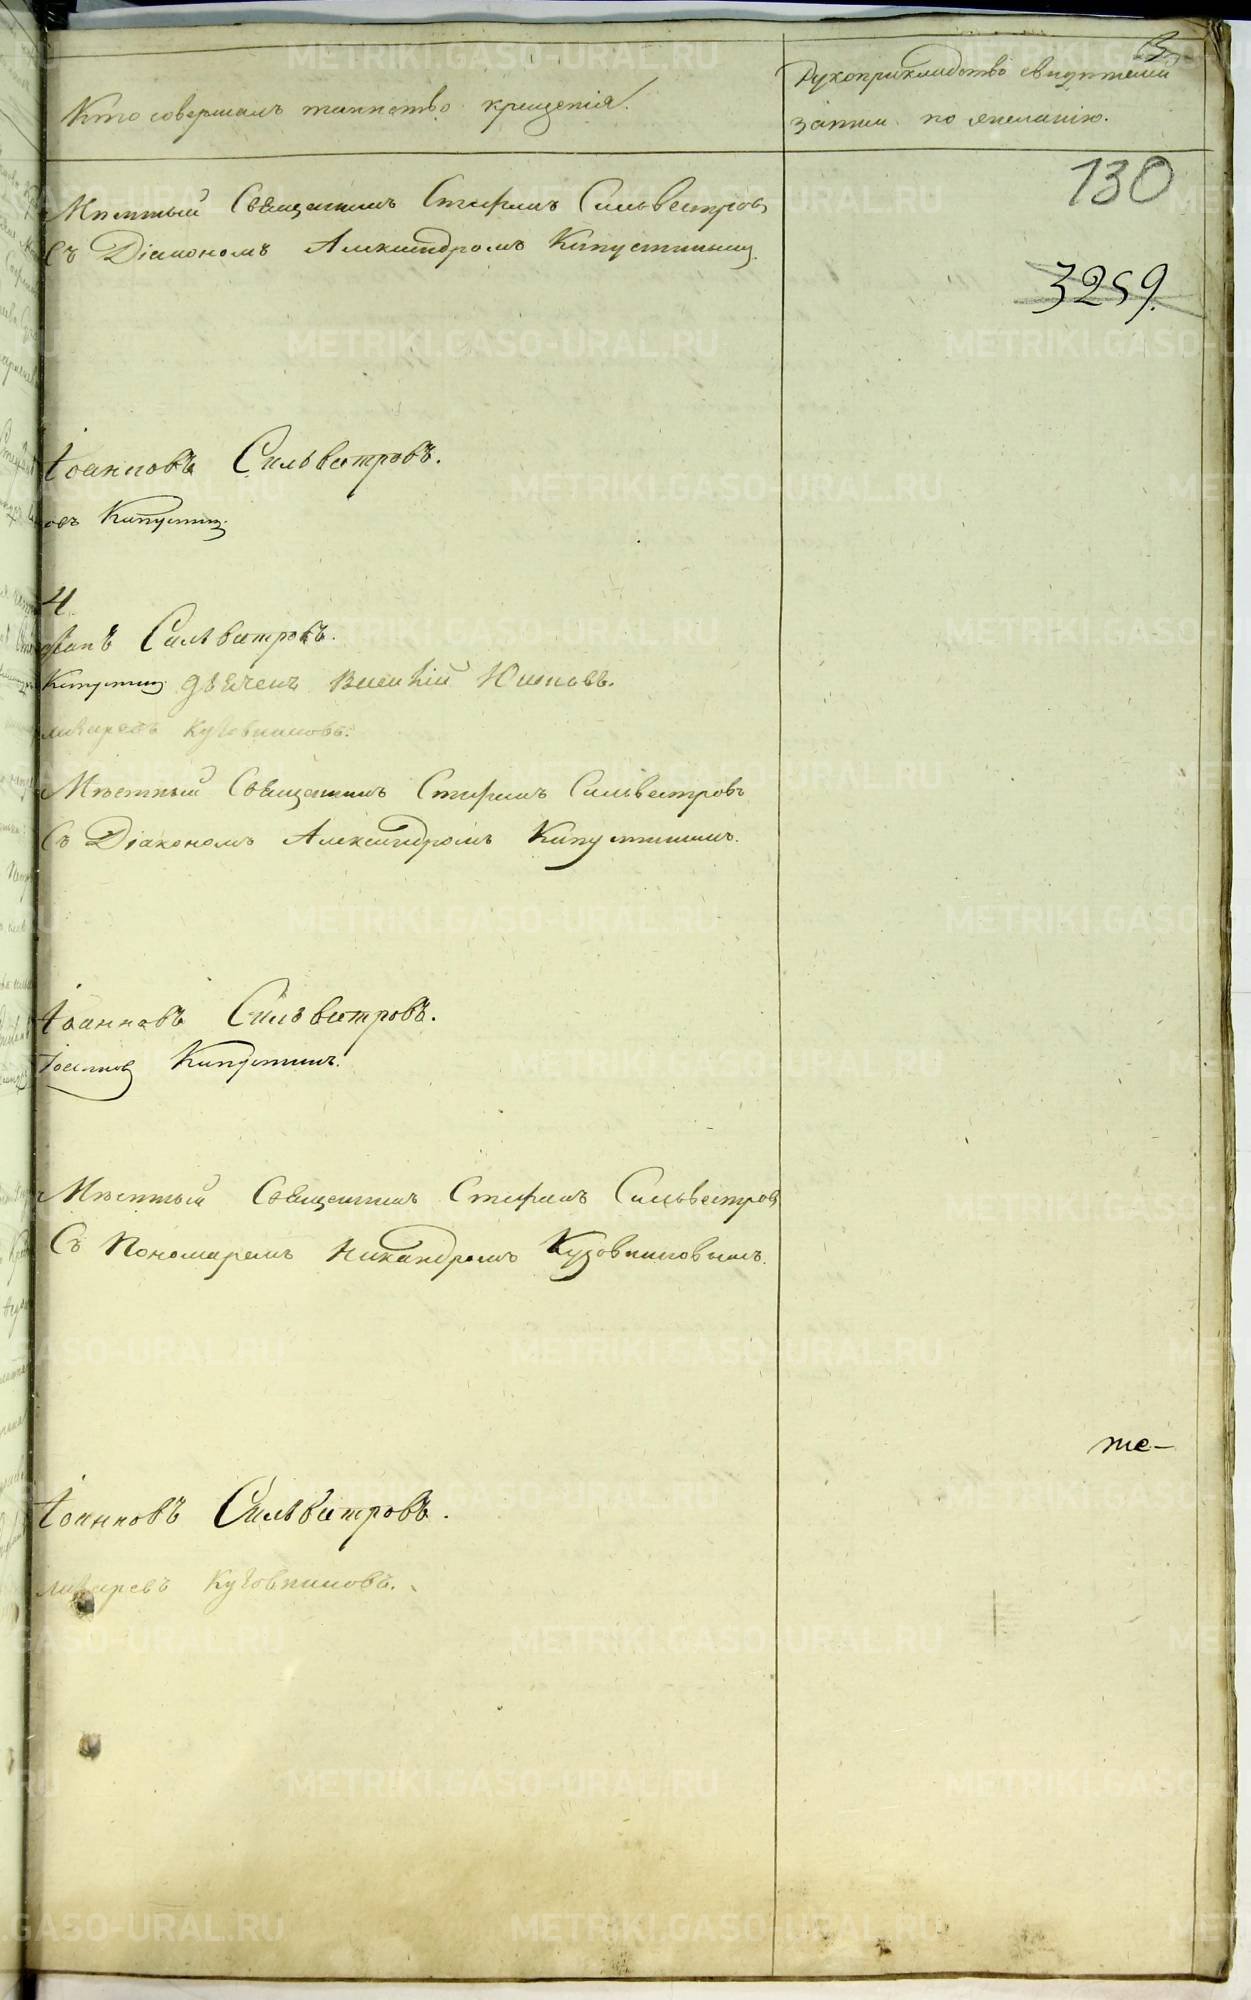 Кто совершалъ таинство крещенія.
Рукоприкладство свидѣтелей
записи по желанію.
130
3259.
Мѣстный Священникъ Стефанъ Сильвестровъ
Съ Діакономъ Александромъ Капустинымъ.
Іоанновъ Сильвестровъ.
овъ Капустинъ
4
фанъ Сильвестровъ.
Капустинъ дьячекъ
Кузовниковъ.
Мѣстный Священникъ Стефанъ Сильвестровъ
Съ Діакономъ Александромъ Капустинымъ.
Іоанновъ Сильвестровъ.
Іоаннов Капустинъ.
Мѣстный Священникъ Стефанъ Сильвестровъ
Съ Пономаремъ Никандромъ Кузовниковымъ.
те-
Іоанновъ Сильвестровъ.
Кузовниковъ.
METRIKI.GASO-URAL.RU